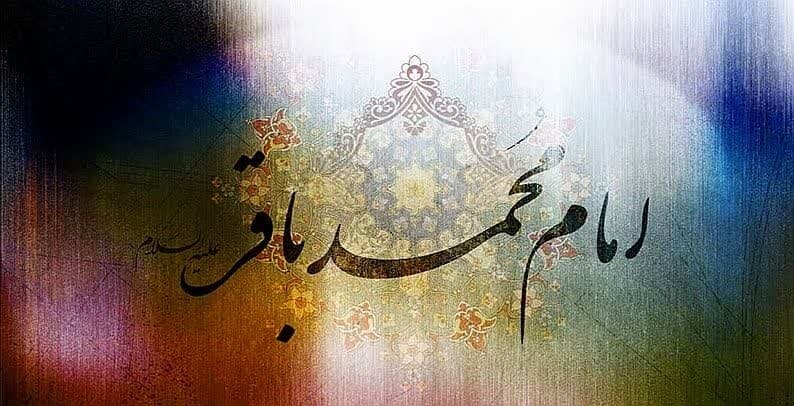 امام محمد باقر علیه السلام